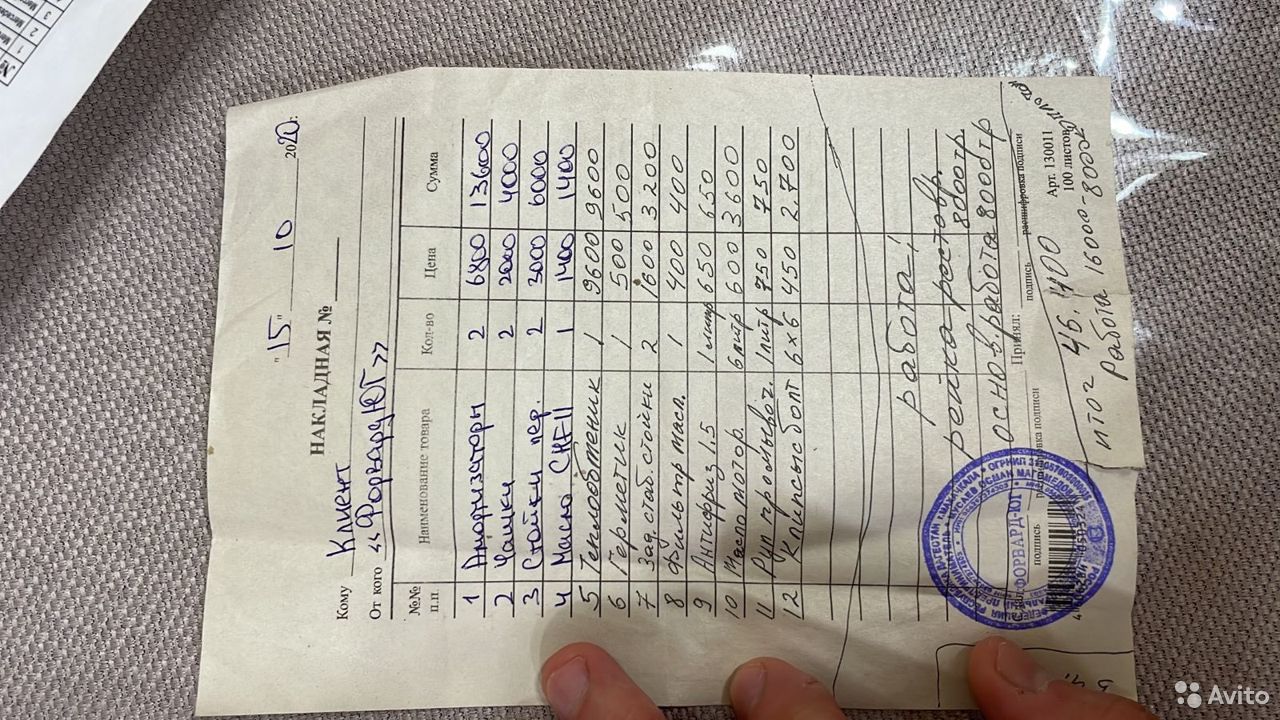 "15" 10 2020г.
НАКЛАДНАЯ №
Кому Клиент
От кого «Форвард ЮГ»
№№ п.п. Наименование товара Кол-во Цена Сумма
1 Амортизаторы 2 6800 13600
2 Чашки 2 2000 4000
3 Стойки пер. 2 3000 6000
4 Масло CHF11 1 1400 1400
5 Теплообменник 1 9600 9600
6 Герметик 1 500 500
7 Зад. стаб. стойки 2 1600 3200
8 Фильтр масл. 1 400 400
9 Антифриз 1,5 1 литр 650 650
10 Масло мотор. 6 литр 600 3600
11 Рул. промывоч. 1 литр 750 750
12 Клипсы с болт 6x6 450 2.700
работа:
рейка-ростовр. 8000тр.
основ. работа 8000тр
Принял:
подпись расшифровка подписи подпись расшифровка подписи
ФОРВАРД-ЮГ
Арт. 130011
100 листов
итог 46.400
Работа 16000-8000
Avito